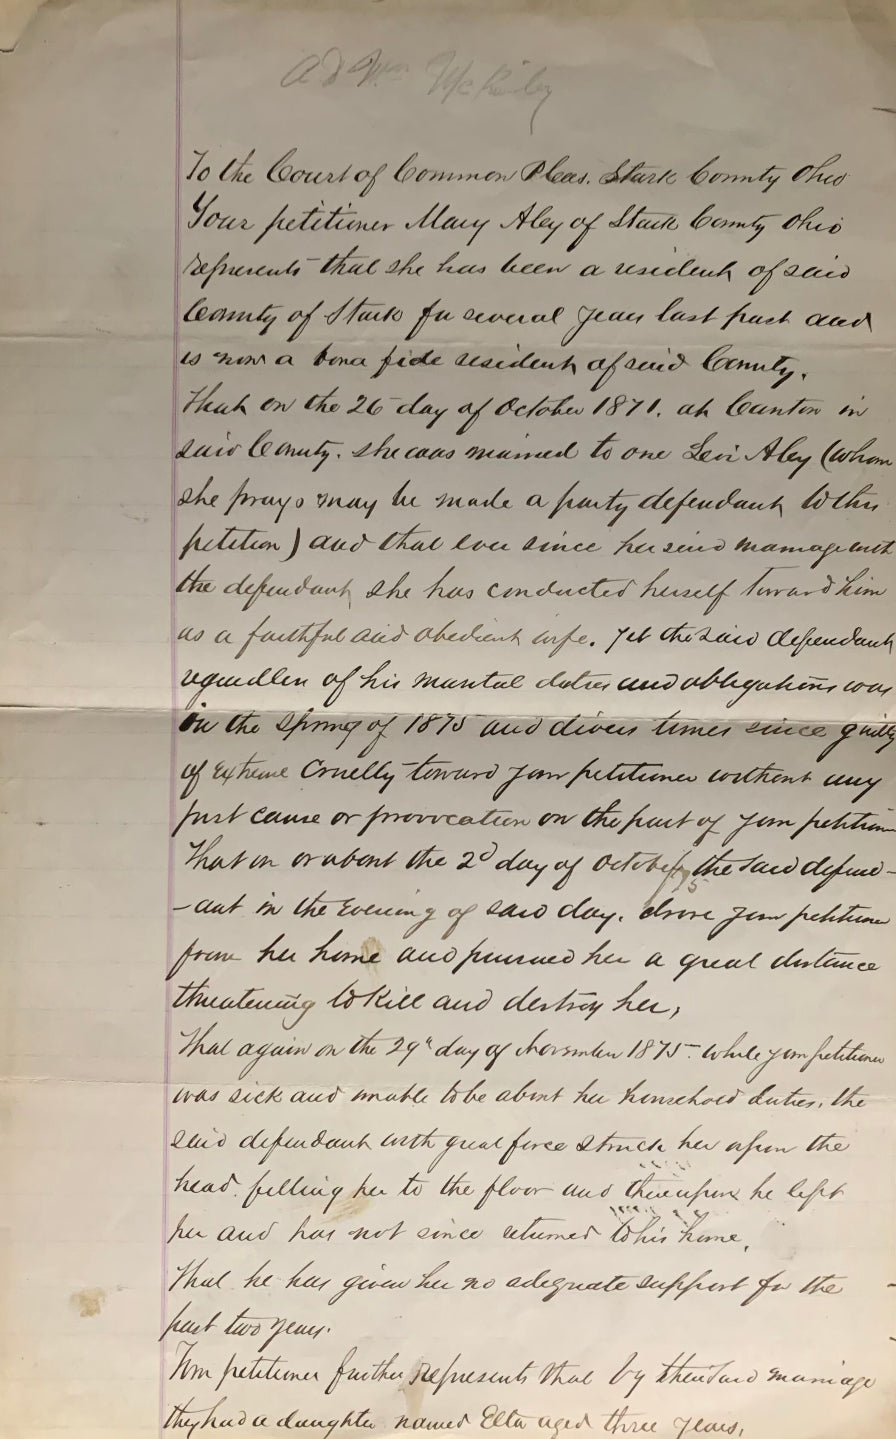 Wm McKinley
To the Court of Common Pleas. Stark County Ohio
Your petitioner Mary Aley of Stark County Ohio
represents that she has been a resident of said
County of Stark for several years last past and
is now a bona fide resident of said County.
That on the 26 day of October 1871. at Canton in
said County. she was married to one Levi Aley (whom
she prays may be made a party defendant to this
petition) and that ever since her said marriage with
the defendant she has conducted herself toward him
as a faithful and obedient wife. Yet the said defendant
regardless of his marital duties and obligations was
in the spring of 1875 and divers times since guilty
of extreme cruelty toward your petitioner without any
just cause or provocation on the part of your petitioner
That on or about the 2d day of October 75 the said defend-
-ant in the evening of said day. drove your petitioner
from her home and pursued her a great distance
threatening to kill and destroy her,
That again on the 29th day of November 1875. while your petitioner
was sick and unable to be about her household duties, the
said defendant with great force struck her upon the
head. felling her to the floor and thereupon he left
her and has not since returned to his home.
That he has given her no adequate support for the
past two years.
Your petitioner further represents that by the said marriage
they had a daughter named Etta aged three years.